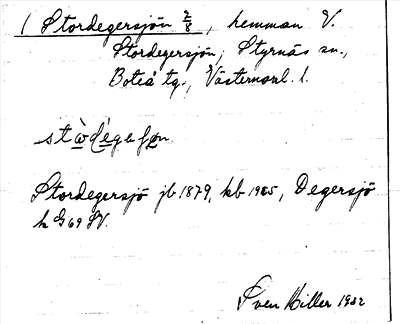 1 Stordegersjön 2/8, hemman V.
Stordegersjön, Styrnäs sn.,
Boteå tg., Västernorrl. l.
Stordegersjö jb 1879, kb 1985, Degersjö
k G69 SV.
Sven Hiller 1932